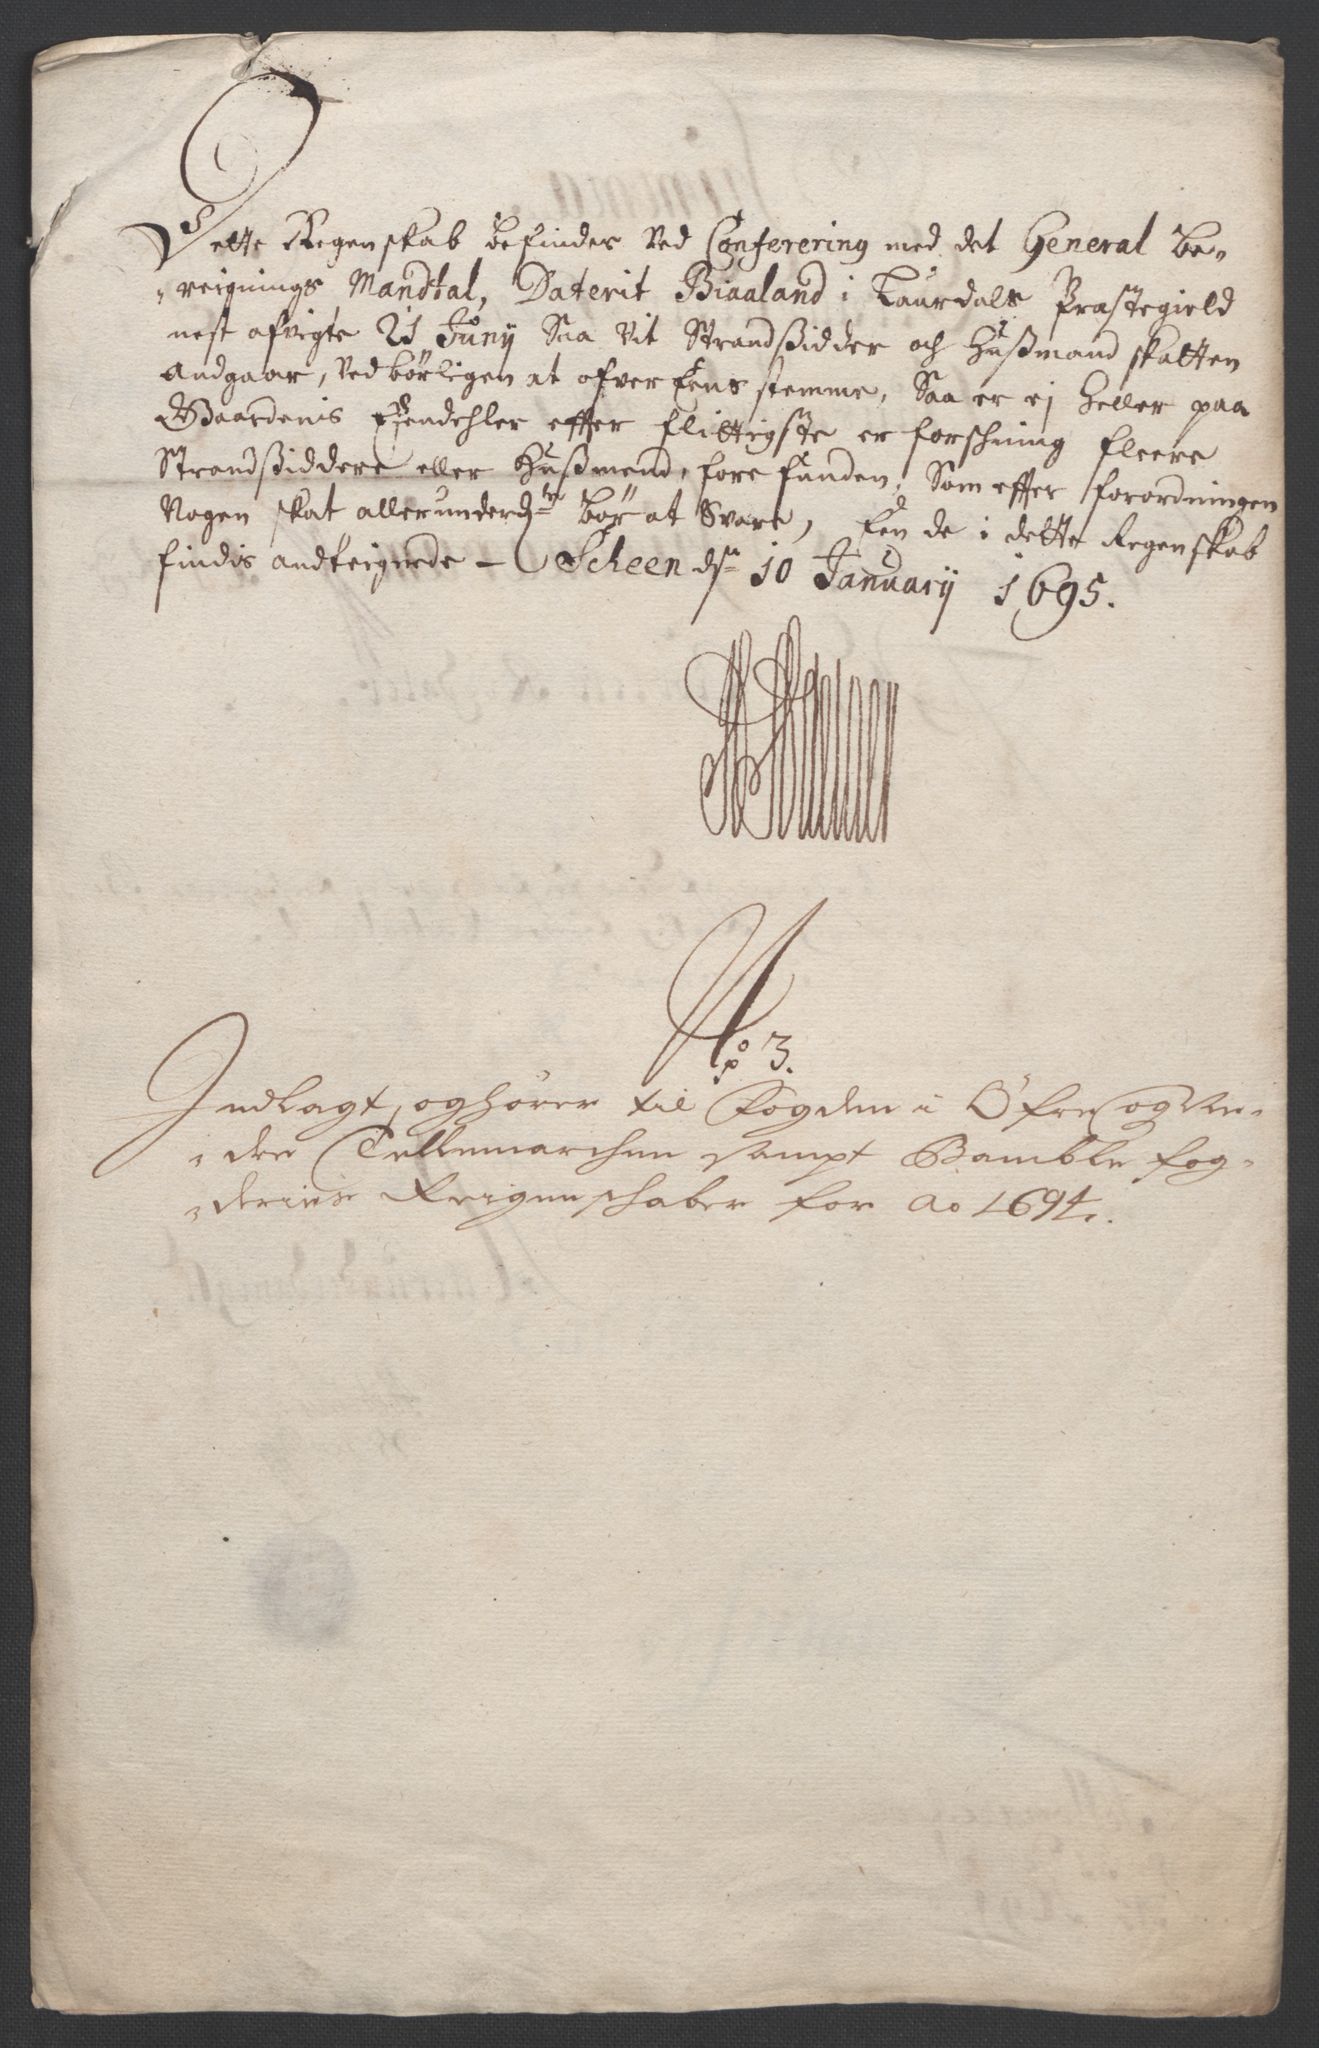 Dette Regenskab befindes ved Conferering med det General be-
reignings Mandtal, Daterit Biaaland i Laurdals Præstegield
nest afvigte 21 Juny Saa vit Strandsidder och Husmand skatten
Andgaar, Vedbørligen at ofver Eens stemme, Saa er ej heller paa
Gaardenis Eiendehler effter flittigste er forschning fleere
Strandsiddere eller Husmend, fore funden, Som effter forordningen
Nogen skat allerunderd: bør at Svare, End de i dette Regenskab
findis andteignede - Scheen dn 10 January 1695.
No 3.
Indlagt, og hører til Fogden i Øfre og Ne-
dre Tellemarchen sampt Bamble fog-
deries Reigenschaber for Ao 1694.